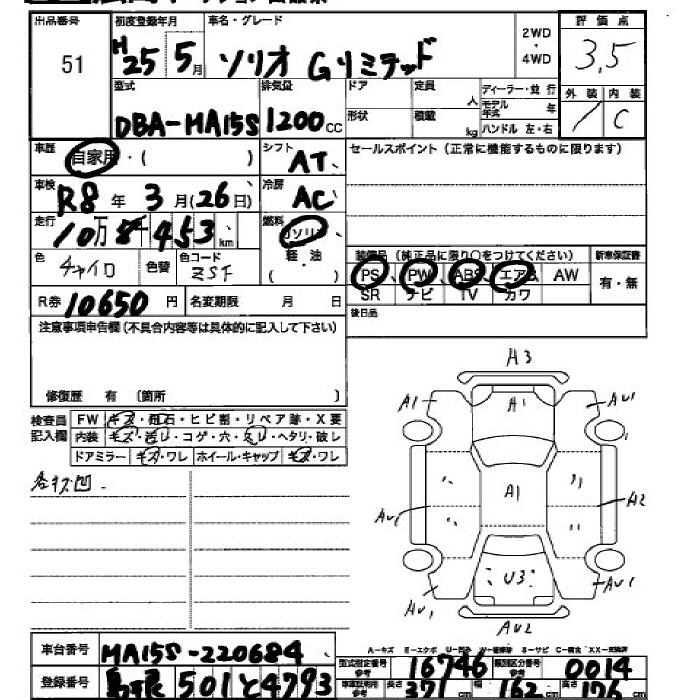 出品番号 初度登録年月 車名・グレード 2WD ・ 4WD 評価点
51 H25 5月 ソリオ Gリミテッド 3.5
型式 排気量 ドア 定員 人 ディーラー・並行 外装 内装
DBA-HA15S 1200cc 形状 積載 kg モデル年式 年 / C
ハンドル 左・右
車歴 自家用・( ) シフト AT セールスポイント(正常に機能するものに限ります)
車検 R8年 3月(26日) 冷房 AC
走行 10万8千453km 燃料 ガソリン
軽・油
( )
色 チャイロ 色替 色コード ZSF
装備品(純正品に限り○をつけてください) 新車保証書
PS PW ABS エアB AW 有・無
SR ナビ TV カワ
R券 10650円 名変期限 月 日
後日品
注意事項申告欄(不具合内容等は具体的に記入して下さい)
修復歴 有 (箇所 )
検査員記入欄 FW キズ・飛石・ヒビ割・リペア跡・X要
内装 キズ・汚レ・コゲ・穴・スレ・ヘタリ・破レ
ドアミラー キズ・ワレ ホイール・キャップ キズ・ワレ
各キズ凹.
A3
A1 A1 AU1
AU1 A1 A2
U3
AU1 AU1
AU2
A-キズ E-エクボ U-凹み W-補修跡 S-サビ C-腐食 XX-交換済
車台番号 HA15S-220684
型式指定番号 参考 16746 類別区分番号 参考 0014
登録番号 島根 501 と 4793
車体証明用 参考 長さ 371cm 幅 162cm 高さ 176cm